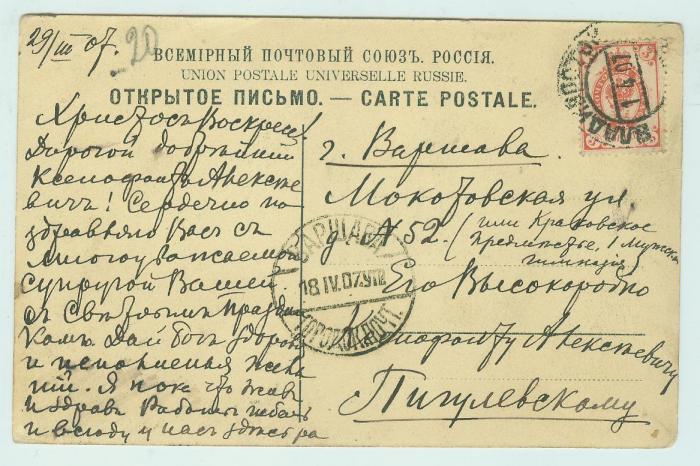 29/III 07.
20
ВСЕМІРНЫЙ ПОЧТОВЫЙ СОЮЗЪ. РОССІЯ.
UNION POSTALE UNIVERSELLE RUSSIE.
ОТКРЫТОЕ ПИСЬМО. — CARTE POSTALE.
Христосъ Воскресъ!
Дорогой добрѣйшій
Ксенофонтъ Алексѣ
евичъ! Сердечно по
здравляю Васъ съ
многоуважаемой
супругой Вашей
съ Свѣтлымъ Празд
комъ. Дай Богъ здоровья
и исполненья жела
ній. Я пока что живъ
и здравъ. Работы
и всюду у насъ
г. Варшава
Мокотовская ул.
д № 52. (или Краковское
предмѣстье, 1 Мужская
гимназія)
Его Высокородію
Ксенофонту Алексѣевичу
Пигулевскому
ВЛАДИВОСТОКЪ
1 4 07
ВАРШАВА
18 IV. 07